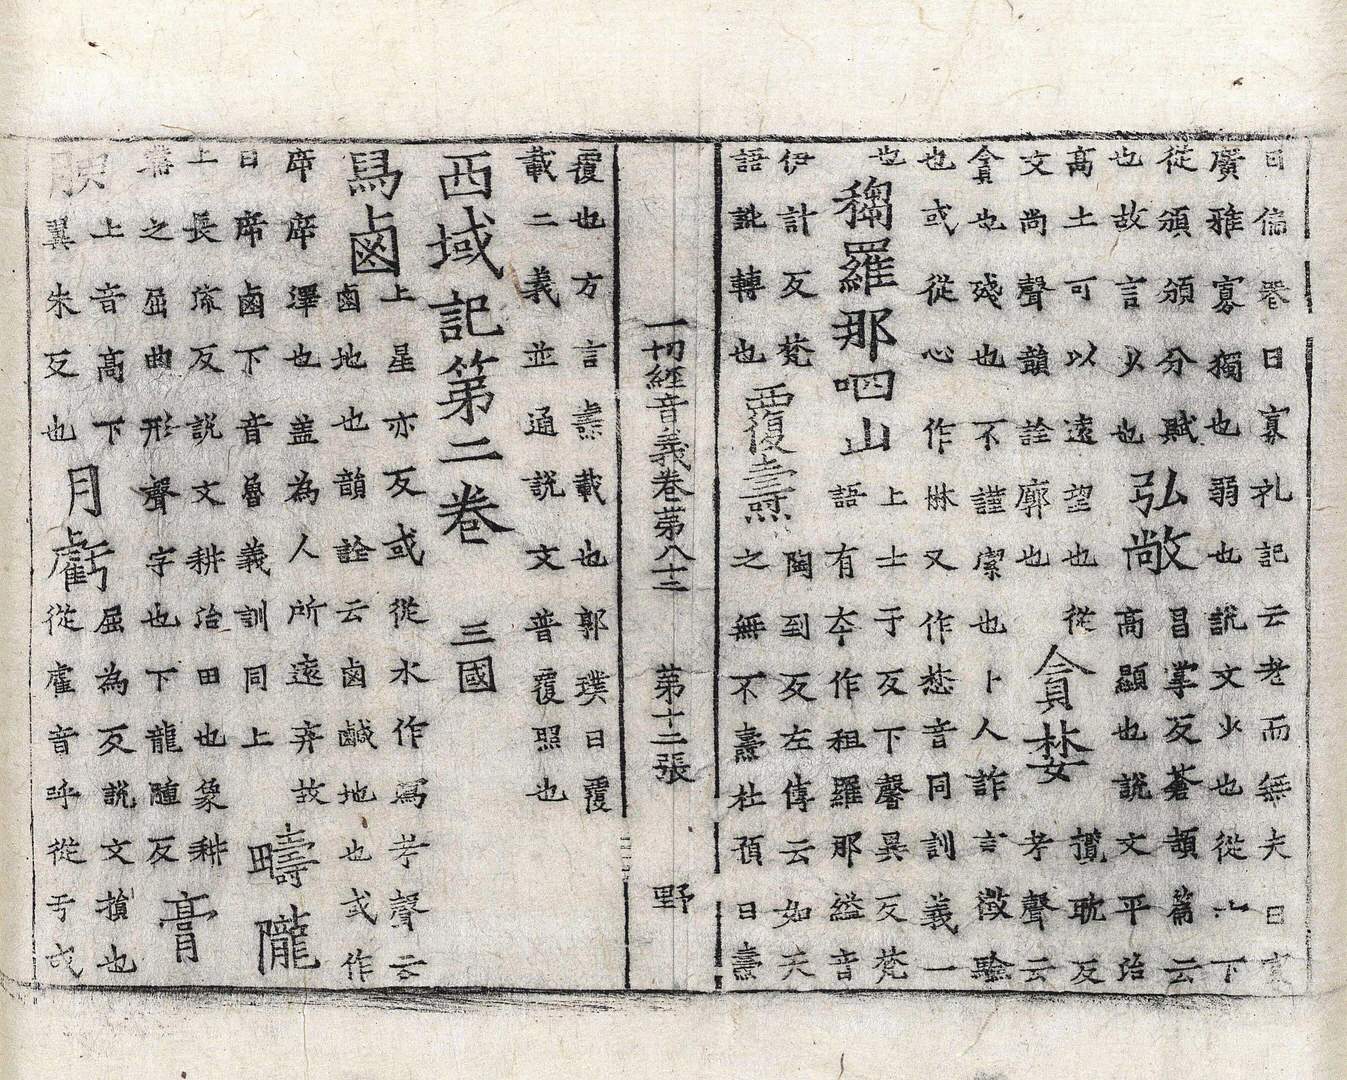 曰偏喪曰寡礼記云老而無夫曰寡
廣雅寡獨也弱也說文少也從宀下
從頒頒分賦
也故言少也
弘敞
昌掌反蒼頡篇云
高顯也說文平治
高土可以遠望也從
文尚聲韻詮廓也
貪婪
攬耽反
考聲云
貪也殘也不謹潔也卜人詐言徵驗
也或從心作惏又作惏音同訓義一
也
穪羅那呬山
上士于反下馨異反梵
語有本作租羅那謚音
伊計反梵
語訛轉也
覆燾
陶到反左傳云如天
之無不燾杜預曰燾
一切經音義卷第八十二 第十二張 野
覆也方言燾載也郭璞曰覆
載二義並通說文普覆照也
西域記第二卷 三國
舄鹵
上星亦反或從水作舄考聲云
鹵地也韻詮云鹵鹹地也或作
席澤也盖為人所遠弃故
曰席鹵下音魯義訓同上
疇隴
上長流反說文耕治田也象耕
之屈曲形聲字也下龍腫反
膏
腴
上音高下
翼朱反也
月虧
屈為反說文損也
從雐音呼從亏或